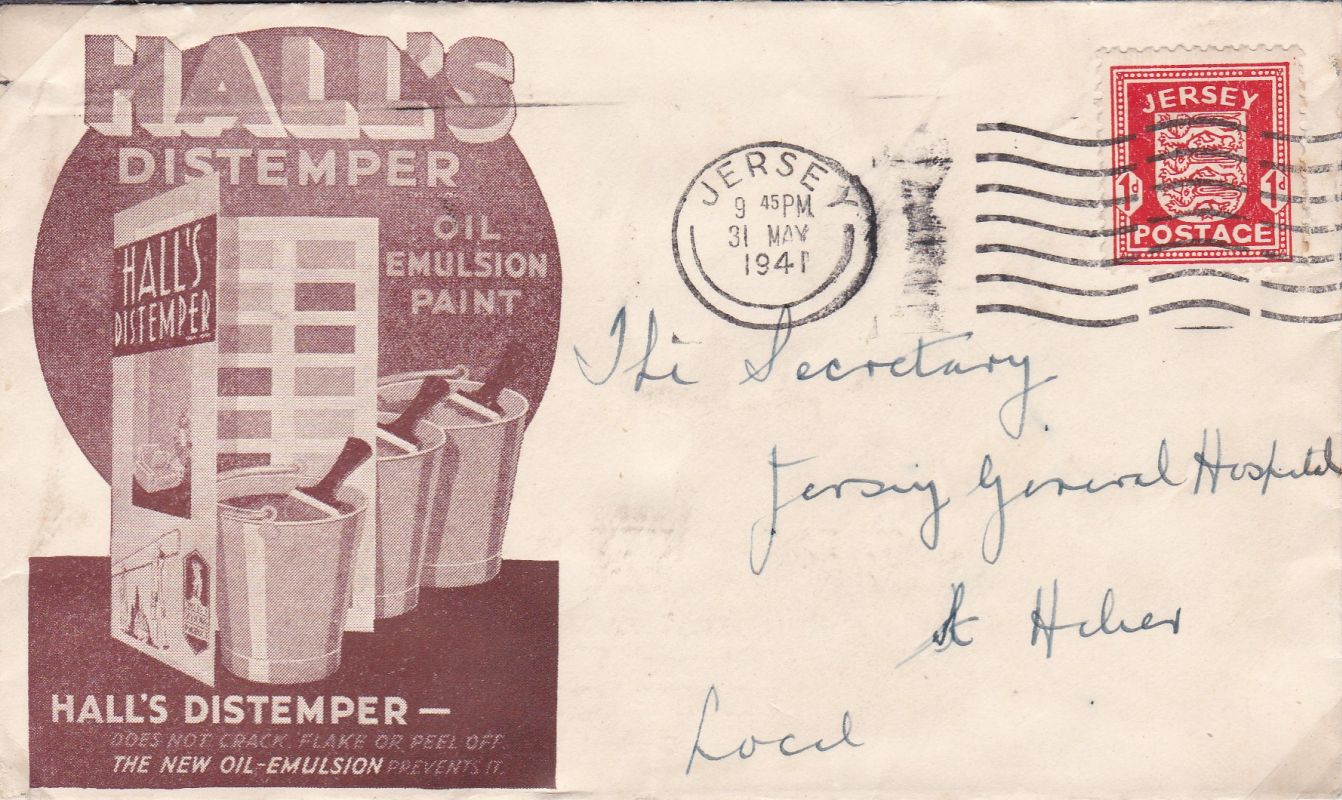 HALL'S
DISTEMPER
OIL
EMULSION
PAINT
HALL'S
DISTEMPER
HALL'S DISTEMPER —
DOES NOT CRACK, FLAKE OR PEEL OFF.
THE NEW OIL-EMULSION PREVENTS IT.
JERSEY
9 45PM
31 MAY
1941
JERSEY
1d 1d
POSTAGE
The Secretary
Jersey General Hospital
St Helier
Local